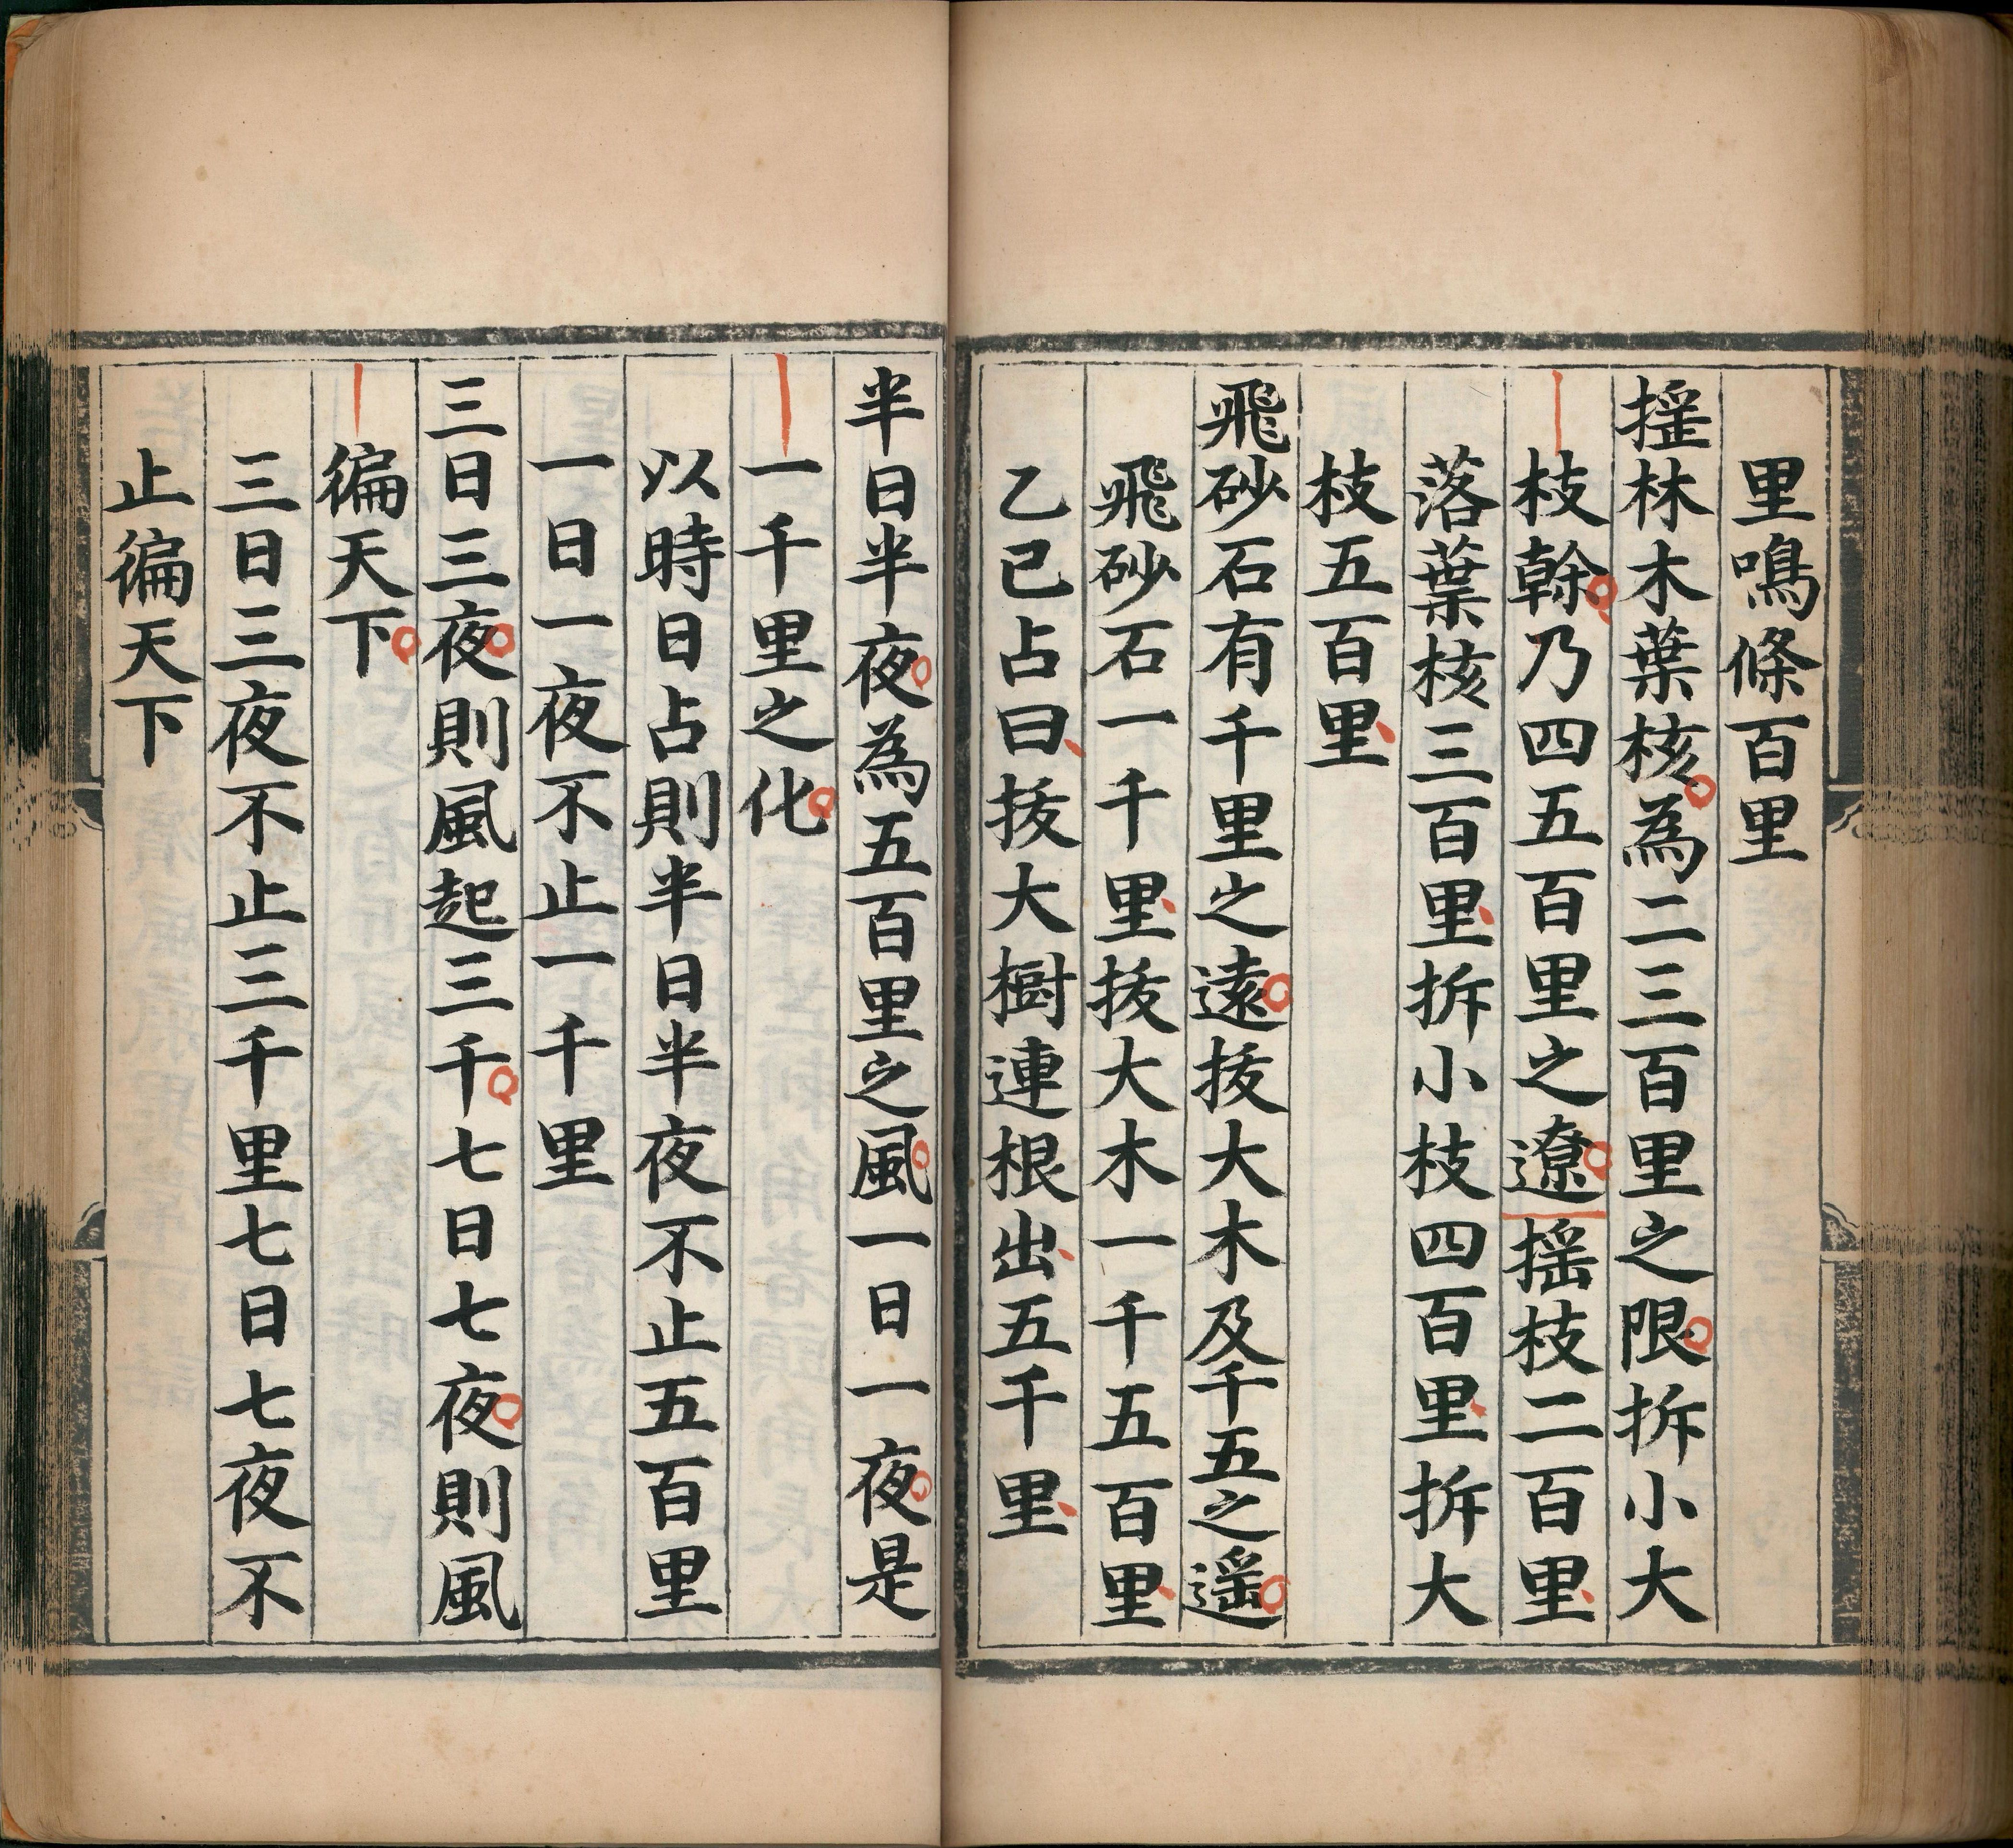 里鳴條百里
揺林木葉核為二三百里之限拆小大
枝幹乃四五百里之遼揺枝二百里
落葉核三百里拆小枝四百里拆大
枝五百里
飛砂石有千里之遠拔大木及千五之遥
飛砂石一千里拔大木一千五百里
乙巳占曰拔大樹連根出五千里
半日半夜為五百里之風一日一夜是
一千里之化
以時日占則半日半夜不止五百里
一日一夜不止一千里
三日三夜則風起三千七日七夜則風
徧天下
三日三夜不止三千里七日七夜不
止徧天下